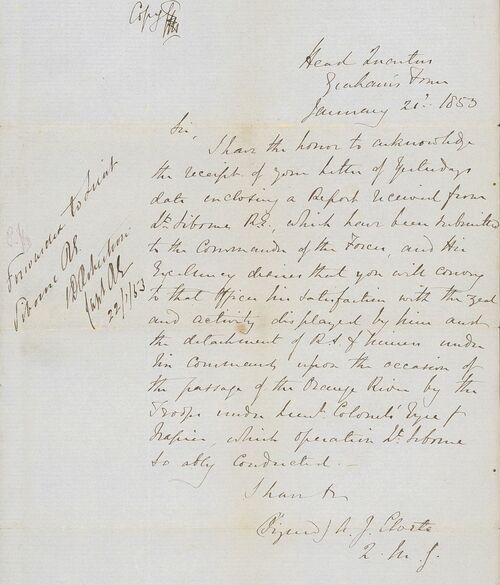 Copy
Head Quarters
Graham's Town
January 21st 1853
Sir,
I have the honor to acknowledge
the receipt of your letter of Yesterdays
date enclosing a Report received from
Lt. Siborne R.E., which have been submitted
to the Commander of the Forces, and His
Excellency desires that you will convey
to that Officer his satisfaction with the zeal
and activity displayed by him and
the detachment of R.A. & under
his Command upon the occasion of
the passage of the Orange River by the
Troops under Lieut. Colonels Eyre &
Napier, which operation Lt. Siborne
so ably conducted. —
I have &c
(Signed) A. J. Cloete
Q. M. G.
Forwarded to Lieut
Siborne RE
Capt RE
22/1/53